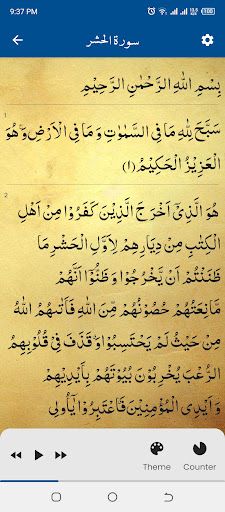 9:37 PM
سورة الحشر
1
بِسْمِ اللّٰهِ الرَّحْمٰنِ الرَّحِيْمِ
سَبَّحَ لِلّٰهِ مَا فِى السَّمٰوٰتِ وَمَا فِى الْاَرْضِ‌ۚ وَهُوَ
الْعَزِيْزُ الْحَكِيْمُ (۱)
2
هُوَ الَّذِىْۤ اَخْرَجَ الَّذِيْنَ كَفَرُوْا مِنْ اَهْلِ
الْكِتٰبِ مِنْ دِيَارِهِمْ لِاَوَّلِ الْحَشْرِؔؕ مَا
ظَنَنْتُمْ اَنْ يَّخْرُجُوْا‌ وَظَنُّوْۤا اَنَّهُمْ
مَّانِعَتُهُمْ حُصُوْنُهُمْ مِّنَ اللّٰهِ فَاَتٰٮهُمُ اللّٰهُ
مِنْ حَيْثُ لَمْ يَحْتَسِبُوْا‌ وَقَذَفَ فِىْ قُلُوْبِهِمُ
الرُّعْبَ يُخْرِبُوْنَ بُيُوْتَهُمْ بِاَيْدِيْهِمْ
وَاَيْدِى الْمُؤْمِنِيْنَ فَاعْتَبِرُوْا يٰۤاُولِى
Theme
Counter